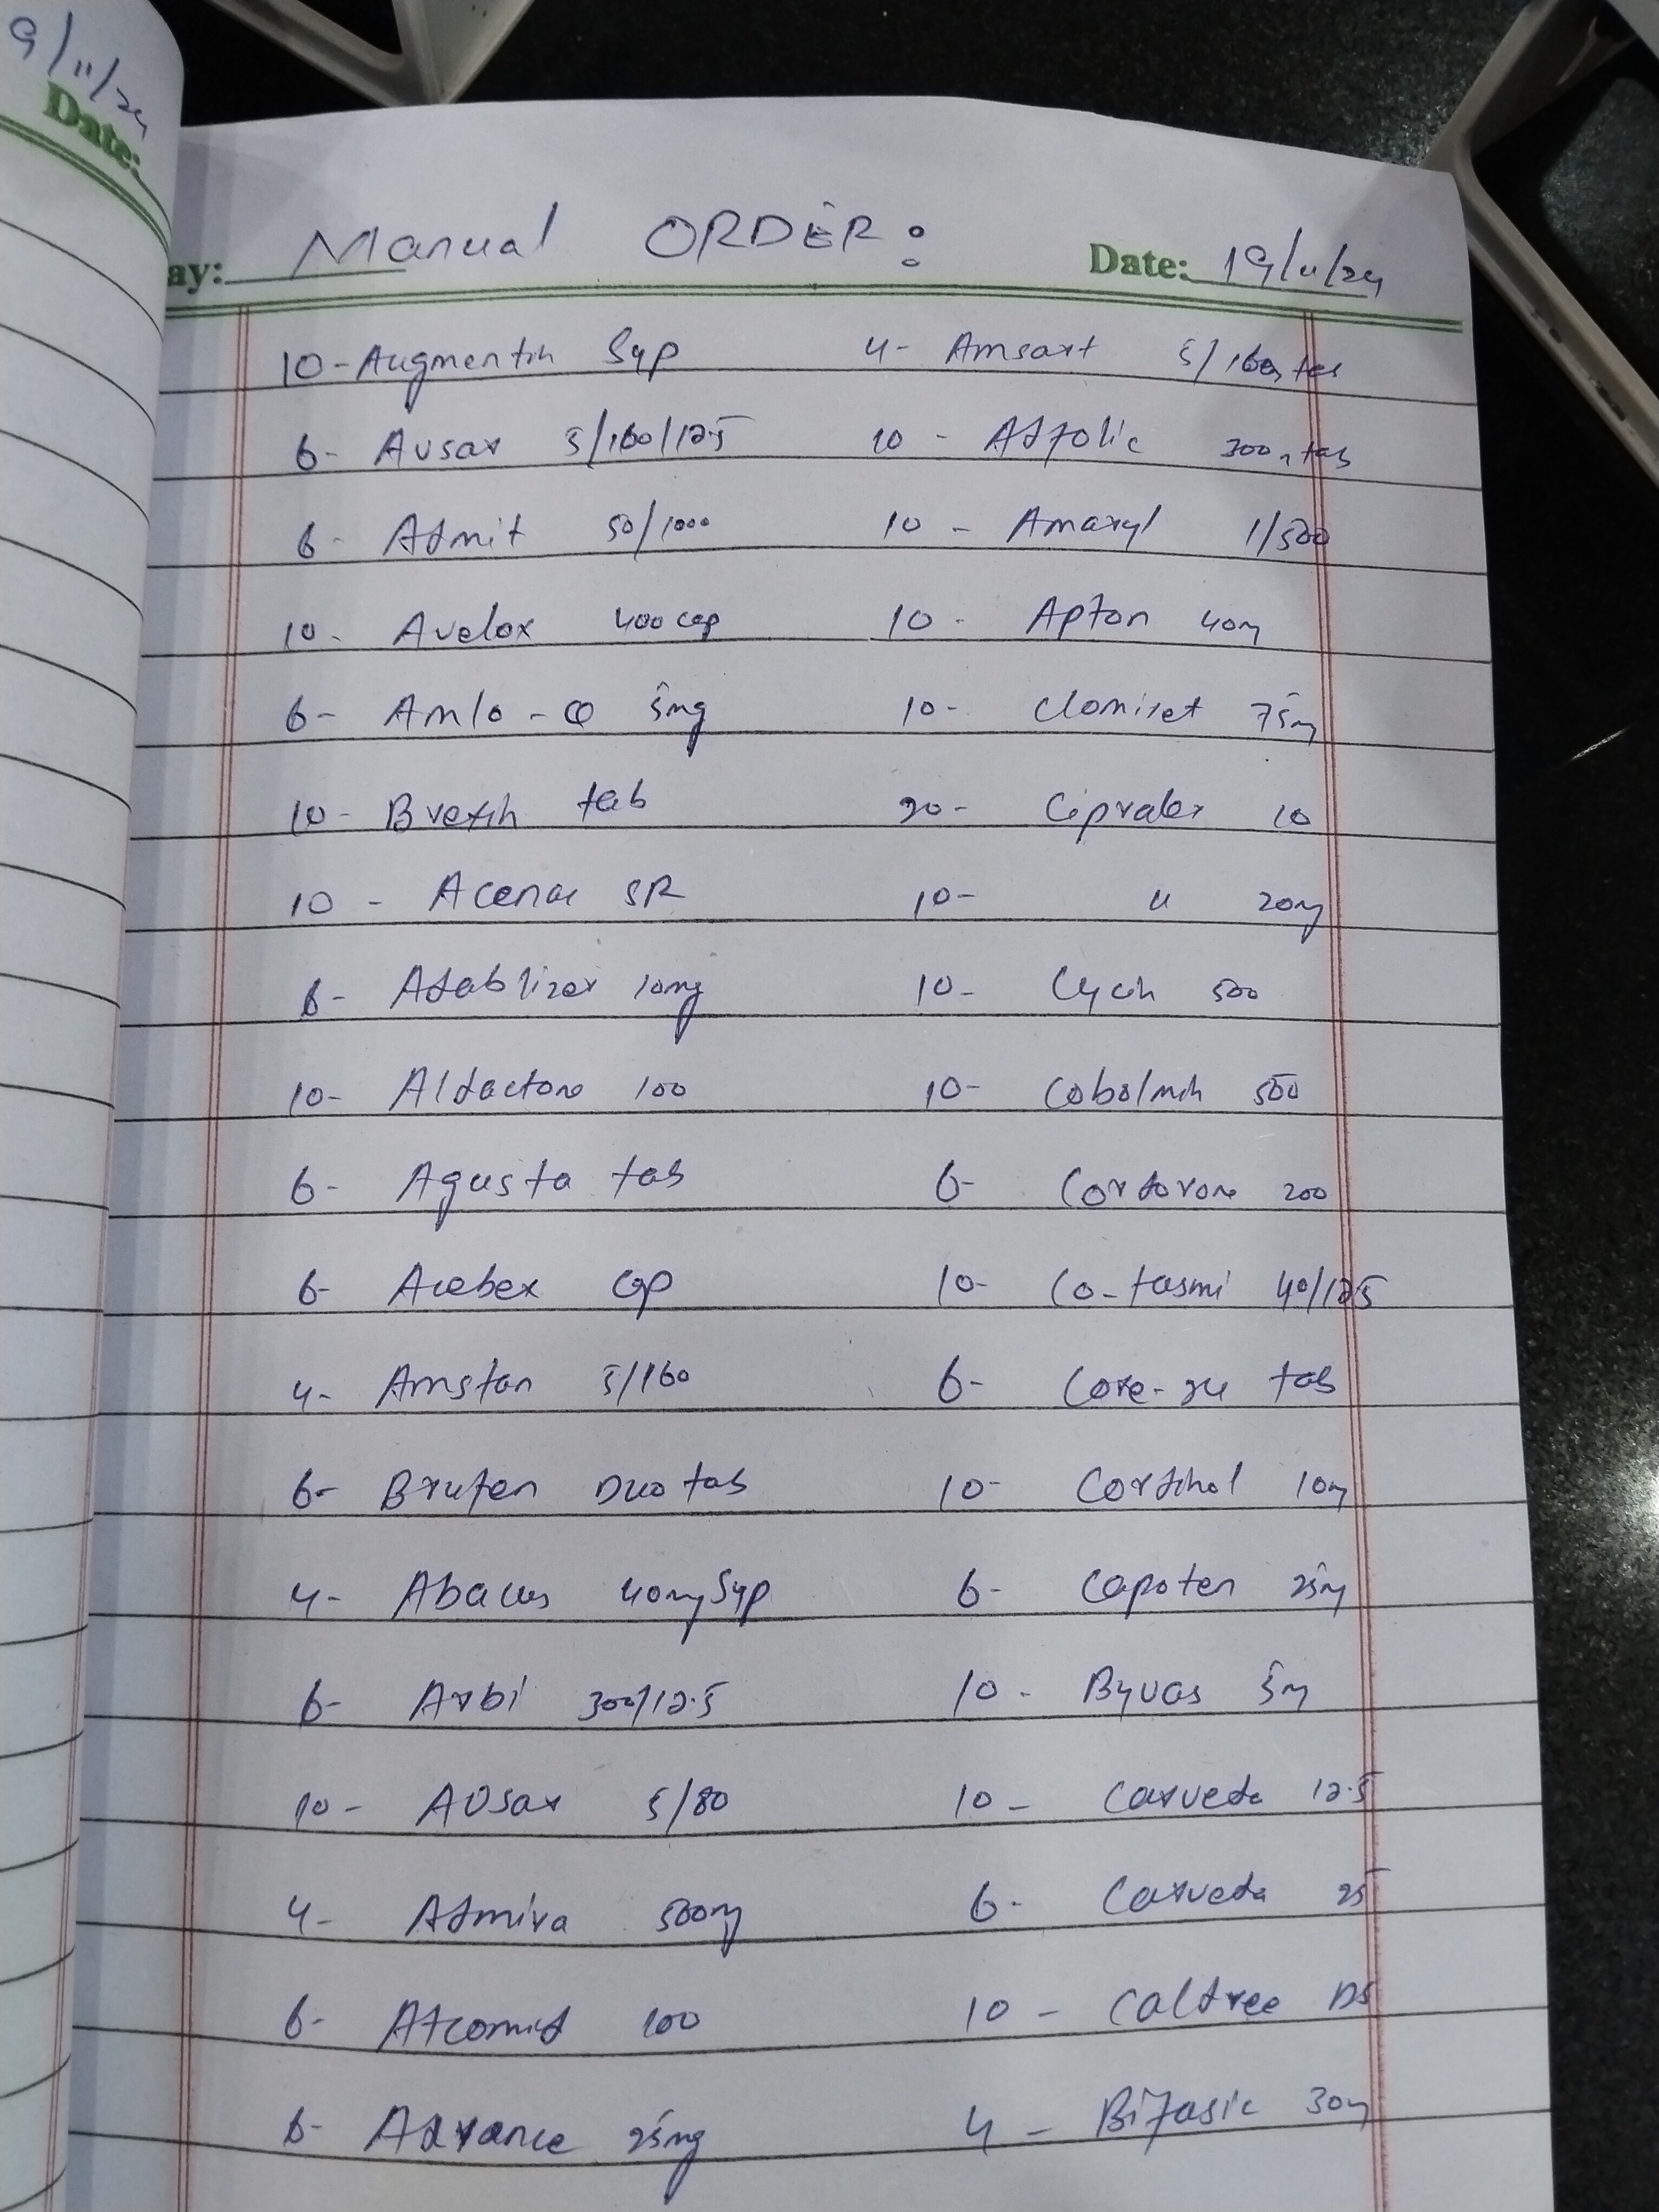 9/11/24
Date:
Manual ORDER:
ay: Date: 19/11/24
10- Augmentin Syp
6- Avsar 5/160/12.5
6- Admit 50/1000
10- Avelox 400 cap
6- Amlo-Q 5mg
10- Brexin tab
10- Acenac SR
6- Atablizer 10mg
10- Aldactone 100
6- Agusta tab
6- Acebex Cap
4- Amstan 5/160
6- Brufen Duo tab
4- Abacus 40mg Syp
6- Arbi 300/12.5
10- Avsar 5/80
4- Admira 500mg
6- Atcomid 100
6- Advance 25mg
4- Amsart 5/160 tab
10- Adfolic 300 tab
10- Amaryl 1/500
10- Apton 40mg
10- Clomiset 75mg
20- Cipralex 10
10- " 20mg
10- Cycin 500
10- Cobolmin 500
6- Cordarone 200
10- Co-tasmi 40/12.5
6- Core-ze tab
10- Cortinol 10mg
6- Capoten 25mg
10- Byvas 5mg
10- Carveda 12.5
6- Carveda 25
10- Caldree DS
4- Bifasic 30mg